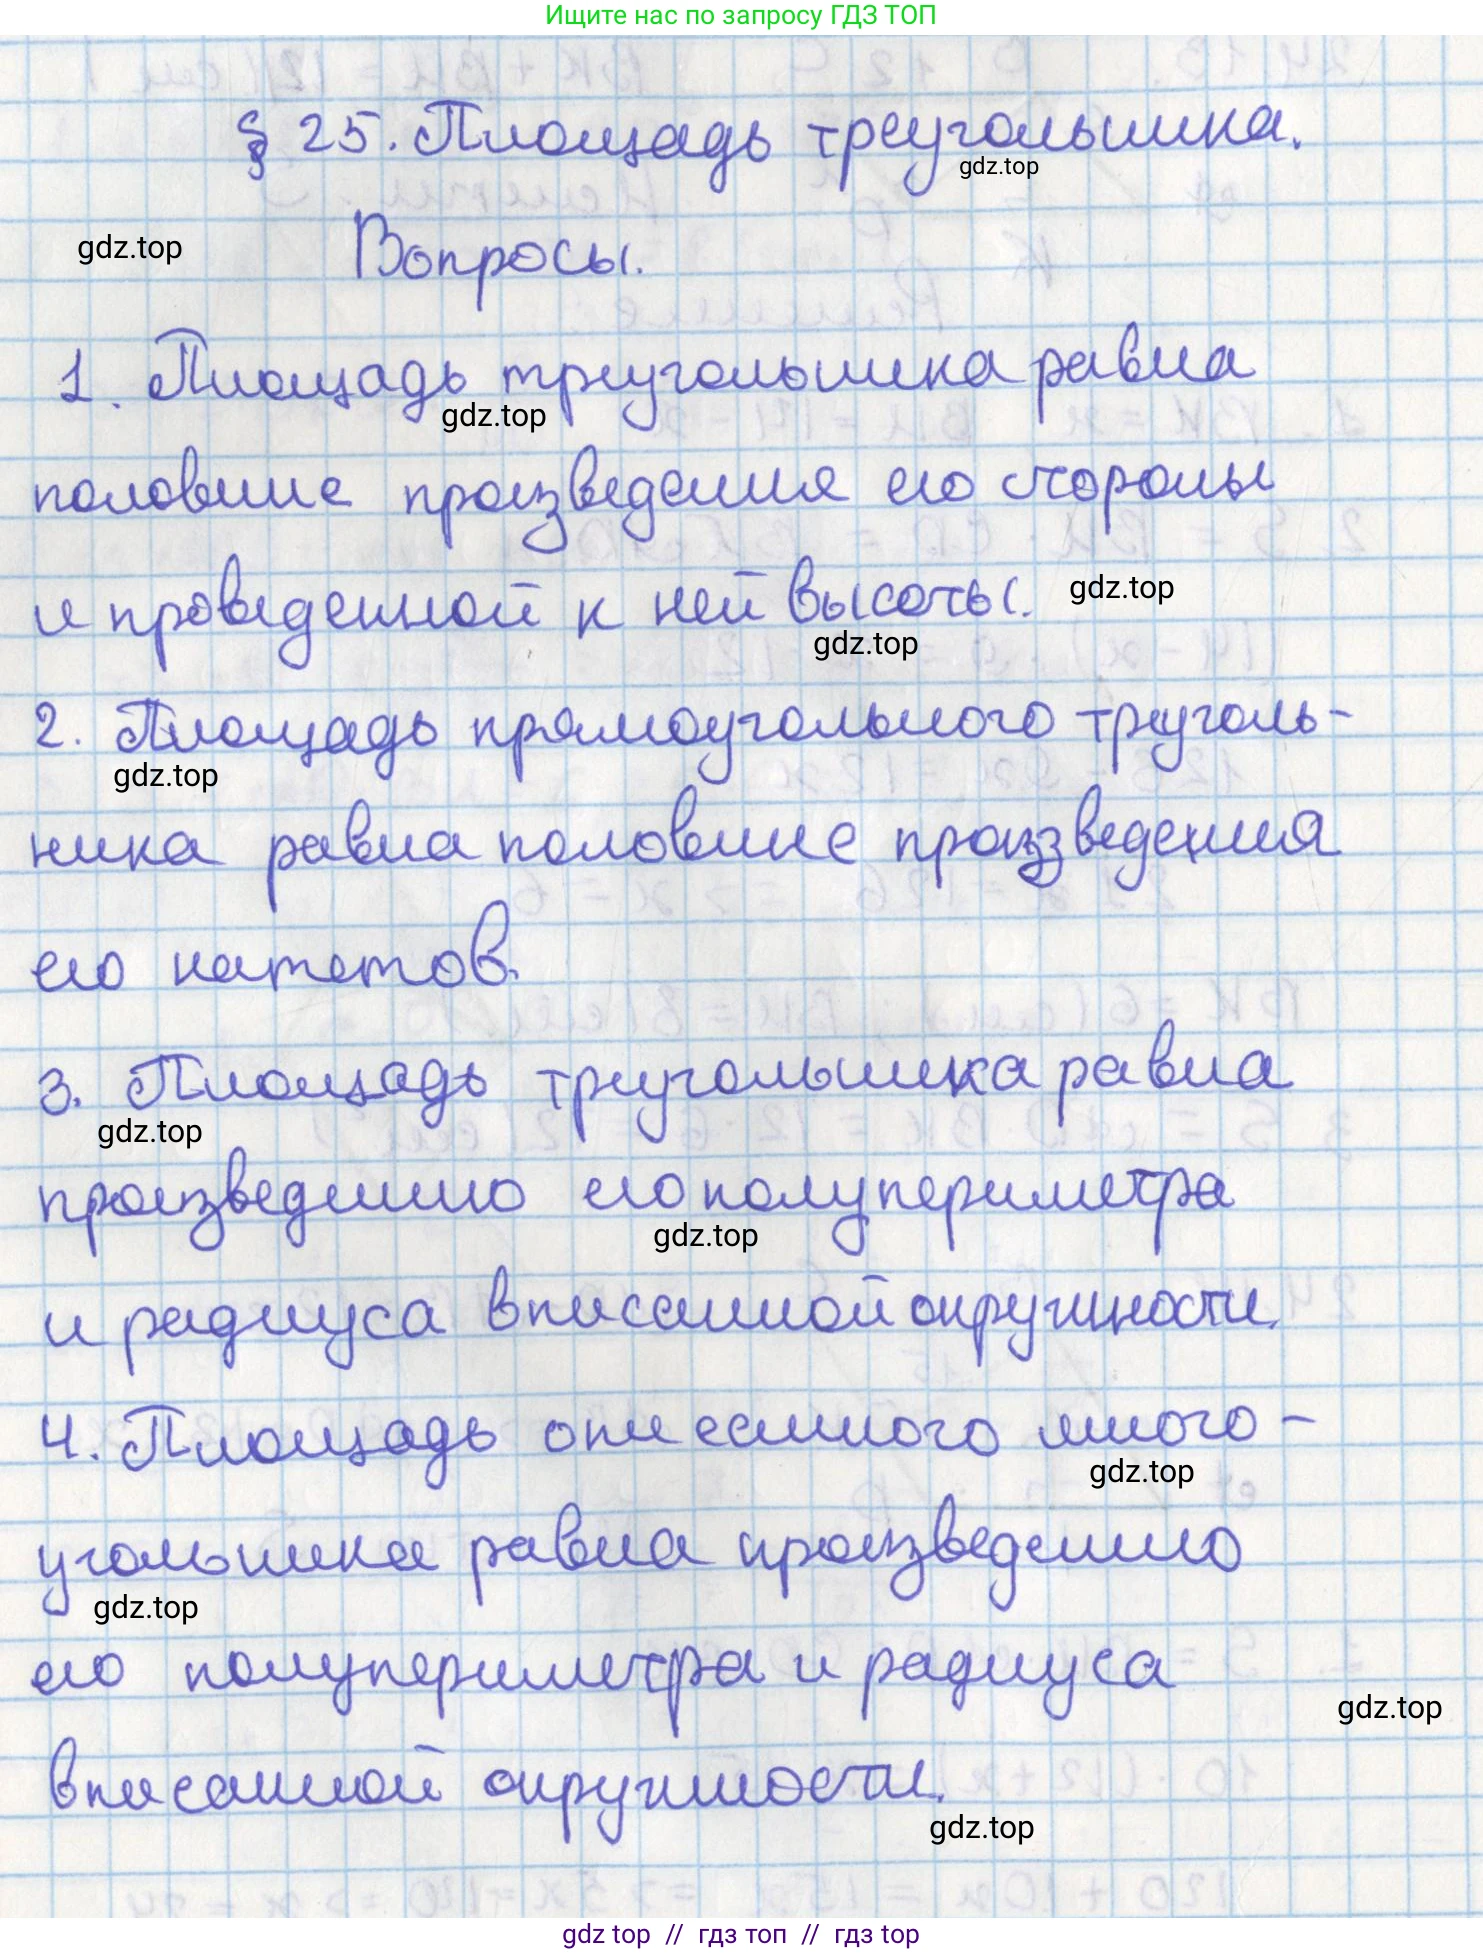 Ищите нас по запросу ГДЗ ТОП
§ 25. Площадь треугольника.
gdz.top
gdz.top
Вопросы.
1. Площадь треугольника равна
gdz.top
половине произведения его стороны
и проведенной к ней высоты.
gdz.top
gdz.top
2. Площадь прямоугольного треуголь-
gdz.top
ника равна половине произведения
его катетов.
3. Площадь треугольника равна
gdz.top
произведению его полупериметра
gdz.top
и радиуса вписанной окружности.
4. Площадь описанного много-
gdz.top
угольника равна произведению
gdz.top
его полупериметра и радиуса
gdz.top
вписанной окружности.
gdz.top
gdz top // гдз топ // гдз top